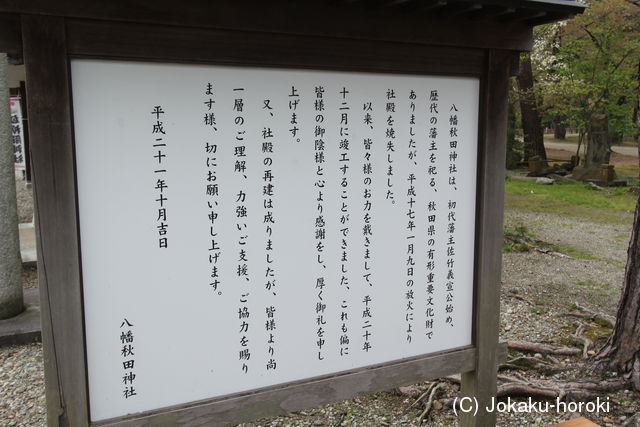 八幡秋田神社は、初代藩主佐竹義宣公始め、
歴代の藩主を祀る、秋田県の有形重要文化財で
ありましたが、平成十七年一月九日の放火により
社殿を焼失しました。
以来、皆々様のお力を戴きまして、平成二十年
十二月に竣工することができました、これも偏に
皆様の御陰様と心より感謝をし、厚く御礼を申し
上げます。
又、社殿の再建は成りましたが、皆様より尚
一層のご理解、力強いご支援、ご協力を賜り
ます様、切にお願い申し上げます。
平成二十一年十月吉日
八幡秋田神社
(C) Jokaku-horoki